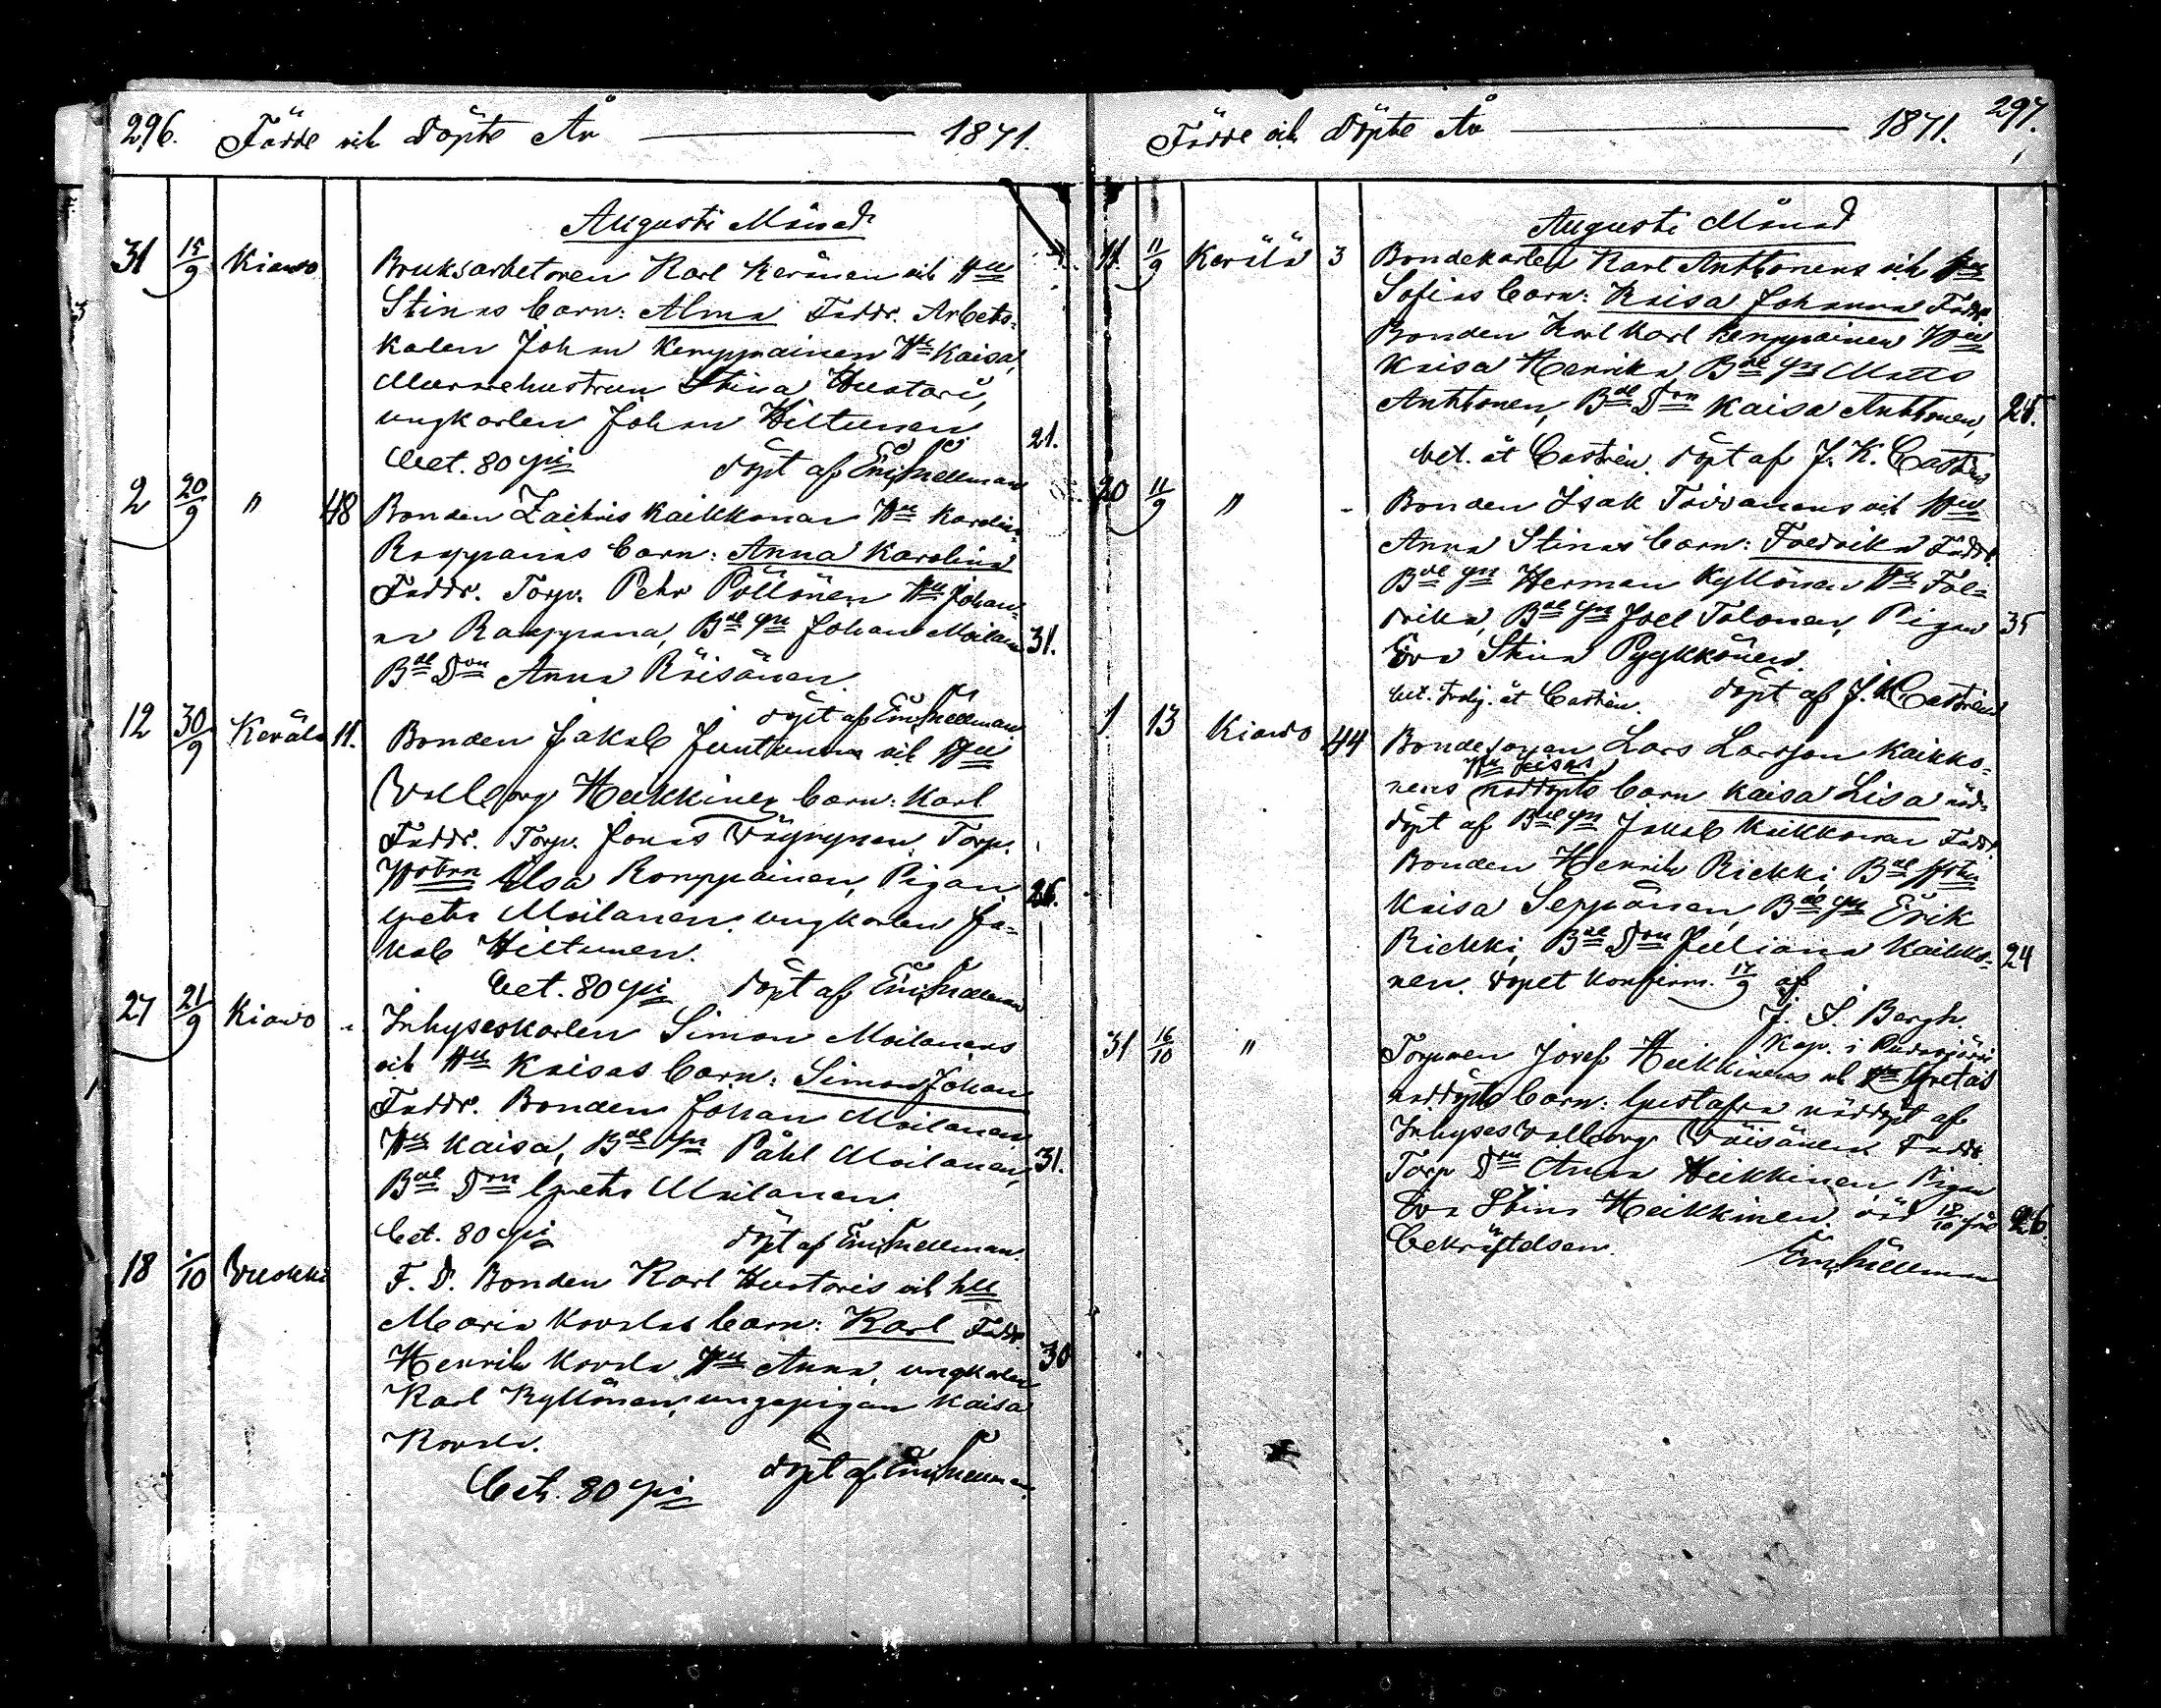 296. Födde och Döpte År 1871.
Augusti Månad
31 15/9 Kiando Bruksarbetaren Karl Keränen och Hu
Stinas barn: Alma Faddr. Arbets-
karlen Johan Kemppainen Hu Kaisa,
Murarehustrun Stina Huotari,
ungkarlen Johan Hiltunen 21.
bet. 80 pi döpt af Em. Snellman
2 20/9 " 48 Bonden Zachris Kaikkonen Hu Karolin
Romppainas barn: Anna Karolina
Faddr. Torp. Pehr Pöllönen Hu Johan-
na Romppana, Bde Sn Johan Moilanen 31.
Bde Drn Anna Räisänen.
döpt af Em. Snellman
12 30/9 Kerälä 11. Bonden Jakob Juntunen och Hu
Wallborg Heikkinen barn: Karl
Faddr. Torp. Jonas Väyrynen, Torp.
Hstrn Elsa Romppainen, Pigan
Greta Moilanen, ungkarlen Ja- 26.
kob Hiltunen.
bet. 80 pi döpt af Em. Snellman
27 21/9 Kiando " Inhyseskarlen Simon Moilanens
och Hu Kaisas barn: Simon Johan
Faddr. Bonden Johan Moilanen
Hu Kaisa, Bde Sn Påhl Moilanen, 31.
Bde Drn Greta Moilanen.
bet. 80 pi döpt af Em. Snellman.
18 1/10 Vuokki F. D. Bonden Karl Huotaris och hu
Maria Kovalas barn: Karl Faddr.
Henrik Kovala Hu Anna, ungkarlen 30
Karl Kyllönen, ungapigan Kaisa
Kovala.
bet. 80 pi döpt af Em. Snellman.
Födde och Döpte År 1871. 297.
Augusti Månad
11. 11/9 Kerälä 3 Bondekarlen Karl Anttonens och Hu
Sofias barn: Kaisa Johanna Faddr.
Bonden Karl Karl Kemppainen Hu
Kaisa Henrika Bde Sn Matts
Anttonen, Bde Drn Kaisa Anttonen, 28.
bet. åt Castrén. döpt af J. K. Castrén
20 11/9 " - Bonden Isak Toivanens och Hu
Anna Stinas barn: Fredrika Faddr.
Bde Sn Herman Kyllönen Hu
drika, Bde Sn Joel Tolonen, Pigan 35
Eva Stina Pyykkönen.
åt Castrén. döpt af J. K. Castrén
1 13 Kiando 44 Bondesonen Lars Larsson Kaikko-
Hu
nens nöddöpte barn Kaisa Lisa nöd-
döpt af Bde Sn Jakob Kaikkonen Faddr.
Bonden Henrik Riekki, Bde Hstru
Kaisa Seppänen, Bde Sn Erik
Riekki, Bde Drn Juliana Kaikko- 24
nen. Dopet konfirm. 17/9 af
J. S. Bergh.
Kap. i Pudasjärvi
31 16/10 " Torparen Josef Heikkinens och Hu Gretas
nöddöpte barn: Gustafva nöddöpt af
Inhyses Vallborg Väisänen Faddr.
Torp Drn Anna Heikkinen Pigan
Eva Stina Heikkinen. 26.
bekräftelsen. Em. Snellman